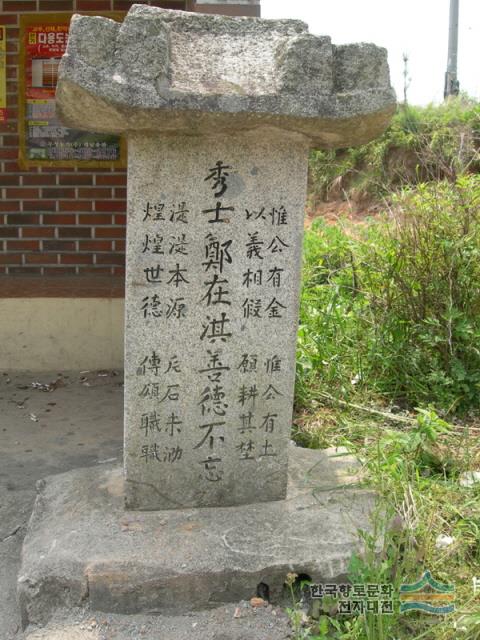 惟公有金 惟公有土
以義相假 願耕其埜
秀士鄭在淇善德不忘
湜湜本源 片石未泐
煌煌世德 傳頌職職
다용도
한국향토문화
전자대전